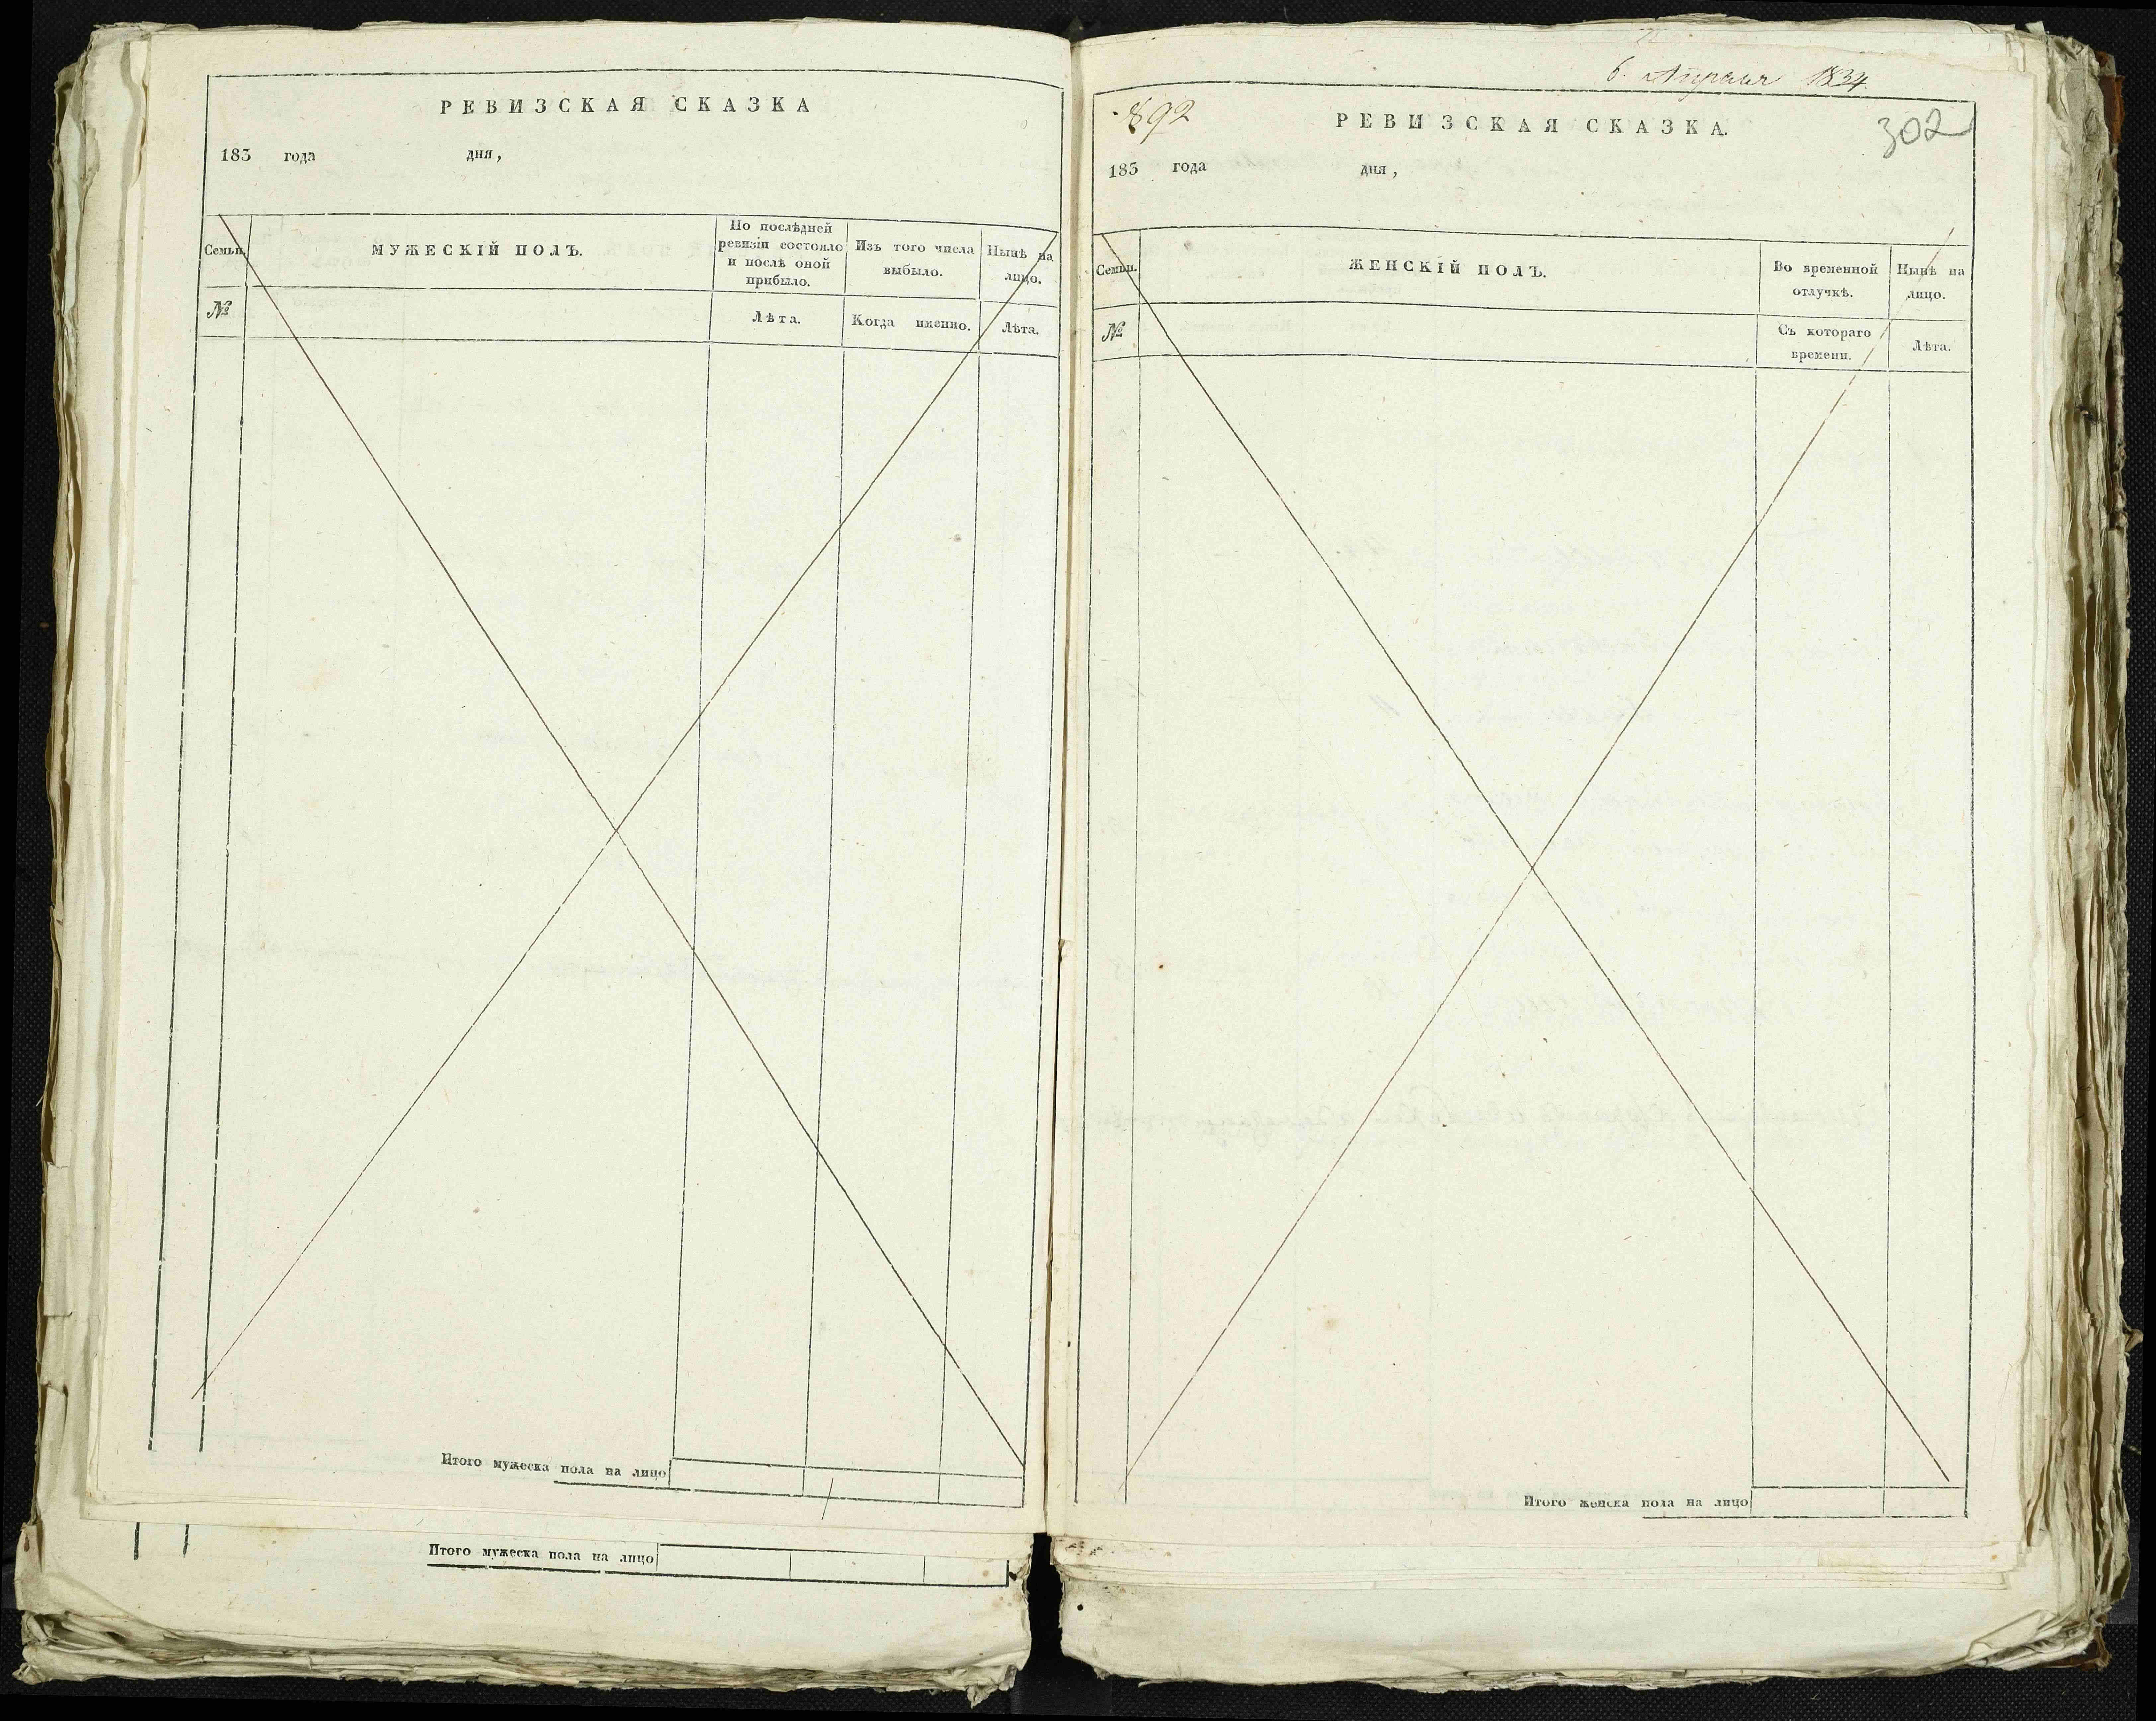 РЕВИЗСКАЯ СКАЗКА
183 года дня,
Семьи.
МУЖЕСКІЙ ПОЛЪ.
По послѣдней ревизіи состояло и послѣ оной прибыло.
Изъ того числа выбыло.
Нынѣ на лицо.
№
Лѣта.
Когда именно.
Лѣта.
Итого мужеска пола на лицо
Итого мужеска пола на лицо
6. Апреля 1834.
892
РЕВИЗСКАЯ СКАЗКА.
302
183 года дня,
Семьи.
ЖЕНСКІЙ ПОЛЪ.
Во временной отлучкѣ.
Нынѣ на лицо.
№
Съ котораго времени.
Лѣта.
Итого женска пола на лицо